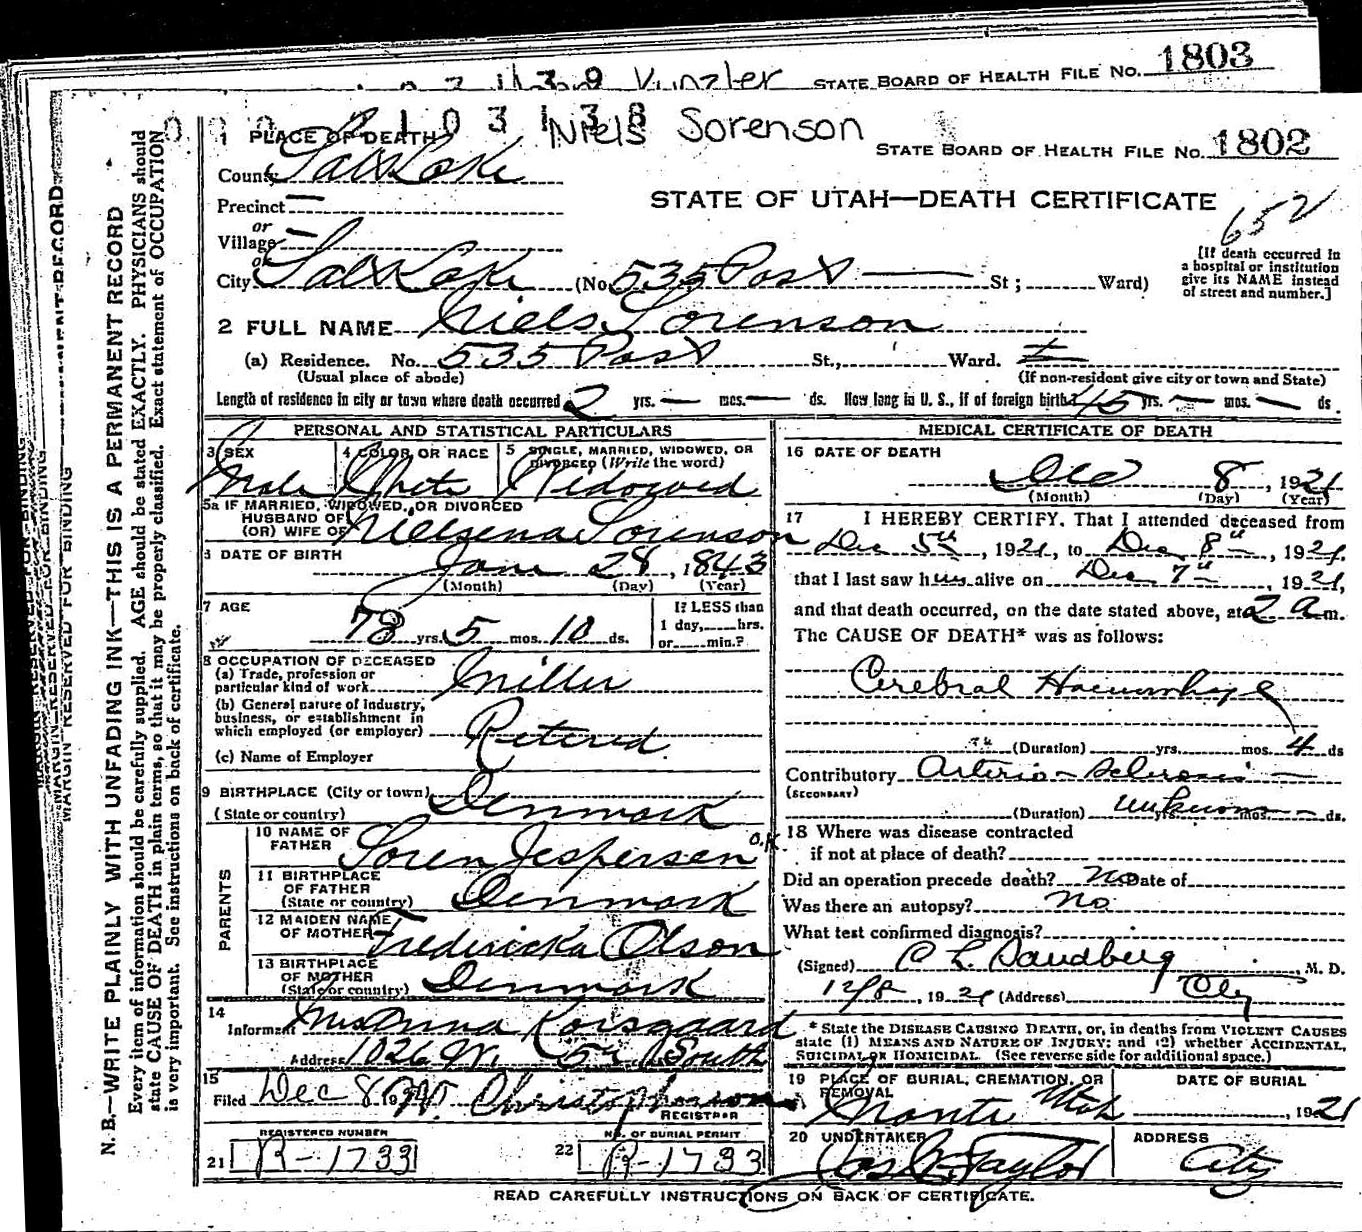 Vunzler STATE BOARD OF HEALTH FILE NO. 1803
2103138 Niels Sorenson
STATE BOARD OF HEALTH FILE NO. 1802
STATE OF UTAH—DEATH CERTIFICATE
652
1 PLACE OF DEATH
County Salt Lake
Precinct —
or
Village —
or
City Salt Lake (No. 535 Post — St; Ward)
[If death occurred in
a hospital or institution
give its NAME instead
of street and number.]
2 FULL NAME Niels Sorenson
(a) Residence. No. 535 Post St., Ward.
(Usual place of abode) (If non-resident give city or town and State)
Length of residence in city or town where death occurred 2 yrs. — mos. — ds. How long in U. S., if of foreign birth? 45 yrs. — mos. — ds.
PERSONAL AND STATISTICAL PARTICULARS
3 SEX Male
4 COLOR OR RACE White
5 SINGLE, MARRIED, WIDOWED, OR
DIVORCED (Write the word) Widowed
5a IF MARRIED, WIDOWED, OR DIVORCED
HUSBAND OF
(OR) WIFE OF Nielsena Sorenson
6 DATE OF BIRTH
June 28, 1843
(Month) (Day) (Year)
7 AGE
78 yrs. 5 mos. 10 ds.
If LESS than
1 day, hrs.
or min.?
8 OCCUPATION OF DECEASED
(a) Trade, profession or
particular kind of work Miller
(b) General nature of Industry,
business, or establishment in
which employed (or employer) Retered
(c) Name of Employer
9 BIRTHPLACE (City or town)
(State or country) Denmark
PARENTS
10 NAME OF
FATHER Soren Jespersen O.K.
11 BIRTHPLACE
OF FATHER
(State or country) Denmark
12 MAIDEN NAME
OF MOTHER Fredericka Olson
13 BIRTHPLACE
OF MOTHER
(State or country) Denmark
14
Informant Mrs Anna Korsgaard
Address 1026 W. 5th South
15
Filed Dec 8 Christopherson
REGISTRAR
REGISTERED NUMBER
21 R-1733
NO. OF BURIAL PERMIT
22 R-1733
MEDICAL CERTIFICATE OF DEATH
16 DATE OF DEATH
Dec 8, 1921
(Month) (Day) (Year)
17 I HEREBY CERTIFY, That I attended deceased from
Dec 5th, 1921, to Dec 8th, 1921.
that I last saw him alive on Dec 7th, 1921,
and that death occurred, on the date stated above, at 2 a m.
The CAUSE OF DEATH* was as follows:
Cerebral Haemorhage
(Duration) yrs. mos. 4 ds
Contributory Arterio-sclerosis —
(SECONDARY)
(Duration) unknown yrs. mos. ds.
18 Where was disease contracted
if not at place of death?
Did an operation precede death? No Date of
Was there an autopsy? No
What test confirmed diagnosis?
(Signed) C L Sandberg, M. D.
12/8, 1921 (Address) City
* State the DISEASE CAUSING DEATH, or, in deaths from VIOLENT CAUSES
state (1) MEANS AND NATURE OF INJURY; and (2) whether ACCIDENTAL,
SUICIDAL or HOMICIDAL. (See reverse side for additional space.)
19 PLACE OF BURIAL, CREMATION, OR
REMOVAL
Manti Utah
DATE OF BURIAL
, 1921
20 UNDERTAKER
Jos E Taylor
ADDRESS
City
READ CAREFULLY INSTRUCTIONS ON BACK OF CERTIFICATE.
MARGIN RESERVED FOR BINDING
N. B.—WRITE PLAINLY WITH UNFADING INK—THIS IS A PERMANENT RECORD
Every item of information should be carefully supplied. AGE should be stated EXACTLY. PHYSICIANS should
state CAUSE OF DEATH in plain terms, so that it may be properly classified. Exact statement of OCCUPATION
is very important. See instructions on back of certificate.